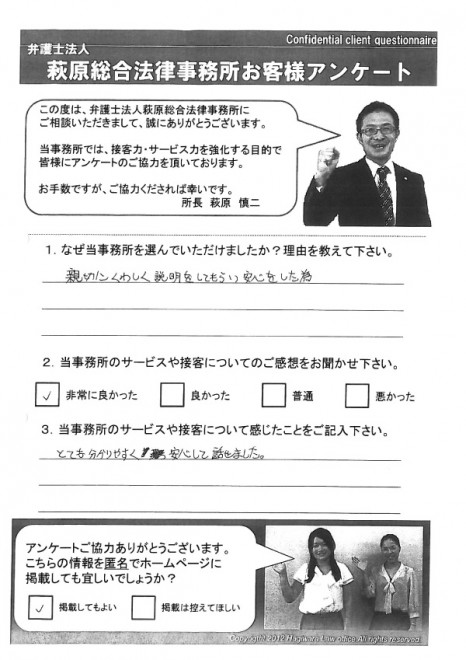 Confidential client questionnaire
弁護士法人
萩原総合法律事務所お客様アンケート
この度は、弁護士法人萩原総合法律事務所に
ご相談いただきまして、誠にありがとうございます。
当事務所では、接客力・サービス力を強化する目的で
皆様にアンケートのご協力を頂いております。
お手数ですが、ご協力くだされば幸いです。
所長 萩原 慎二
1. なぜ当事務所を選んでいただけましたか?理由を教えて下さい。
親切にくわしく説明をしてもらい安心をした為
2. 当事務所のサービスや接客についてのご感想をお聞かせ下さい。
✓ 非常に良かった 良かった 普通 悪かった
3. 当事務所のサービスや接客について感じたことをご記入下さい。
とても分かりやすく 安心して話せました。
アンケートご協力ありがとうございます。
こちらの情報を匿名でホームページに
掲載しても宜しいでしょうか?
✓ 掲載してもよい 掲載は控えてほしい
Copyright 2012 Hagiwara Law office All rights reserved.